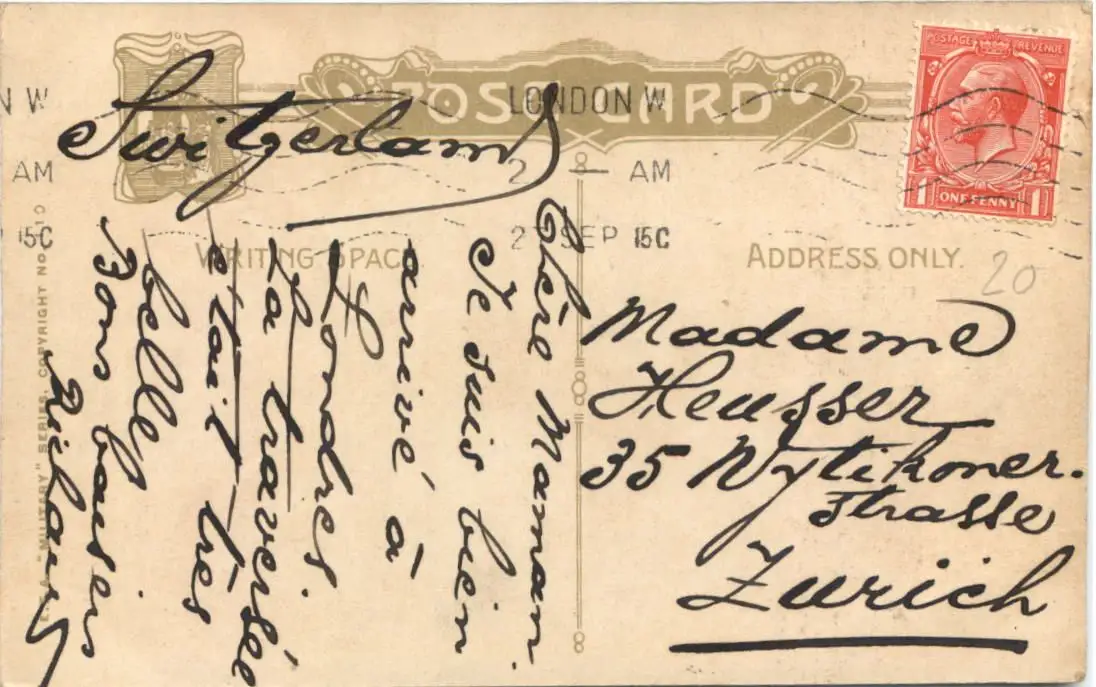 POST CARD
LONDON W
N W
2 — AM
AM
2 SEP 15C
15C
POSTAGE REVENUE
ONE PENNY
1 1
Switzerland
WRITING SPACE.
ADDRESS ONLY.
20
Chère Maman
Je suis bien
arrivé à
Londres
La traversée
etait très
belle
Bons baisers
Richard
Madame
Heusser
35 Wytikoner-
strasse
Zurich
"MILITARY" SERIES, COPYRIGHT NO. 10